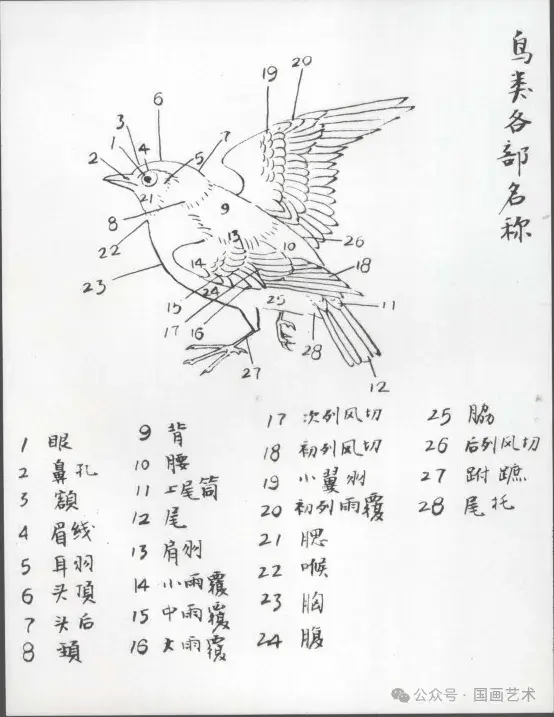 鸟类各部名称
1 眼
2 鼻孔
3 额
4 眉线
5 耳羽
6 头顶
7 头后
8 颈
9 背
10 腰
11 上尾筒
12 尾
13 肩羽
14 小雨覆
15 中雨覆
16 大雨覆
17 次列风切
18 初列风切
19 小翼羽
20 初列雨覆
21 腮
22 喉
23 胸
24 腹
25 脇
26 后列风切
27 跗蹠
28 尾托
19
20
6
3
1
4
2
5
7
21
8
9
22
13
10
26
23
14
18
15
24
25
11
17
16
28
27
12
公众号·国画艺术